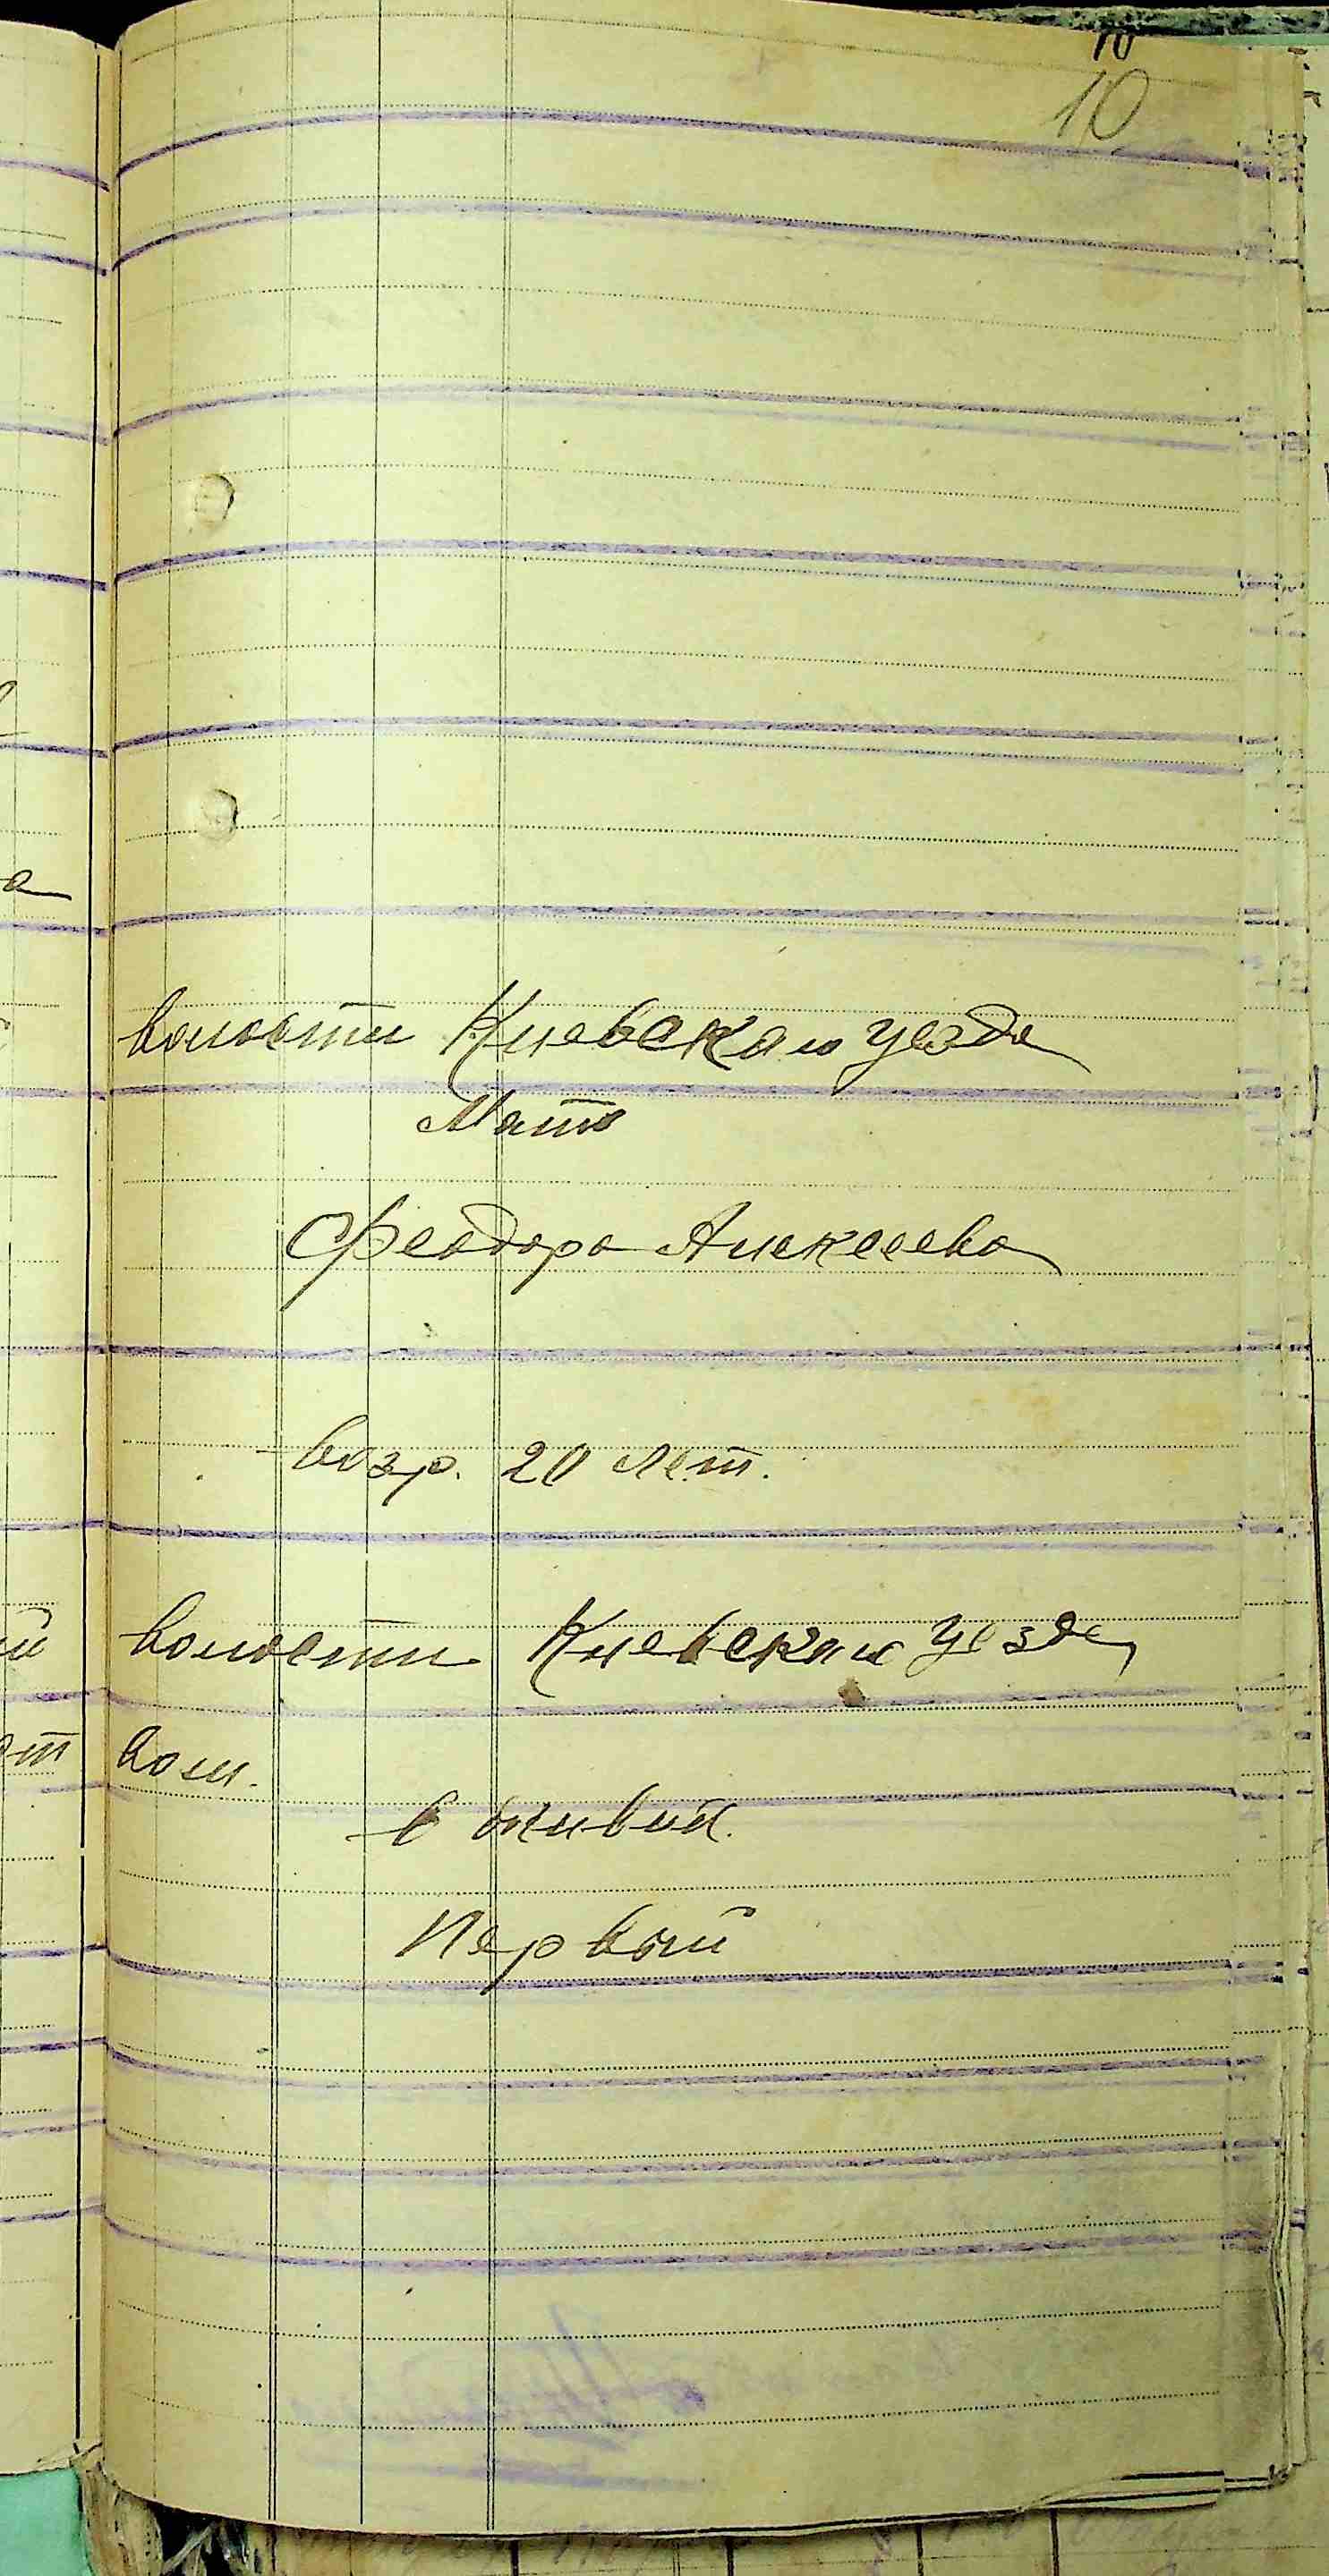 10
10
а
волости Киевскаго уезда
Мать
Феодора Алексеева
возр. 20 лет.
й волости Киевскаго уезда
ет вол.
в живых.
Первый